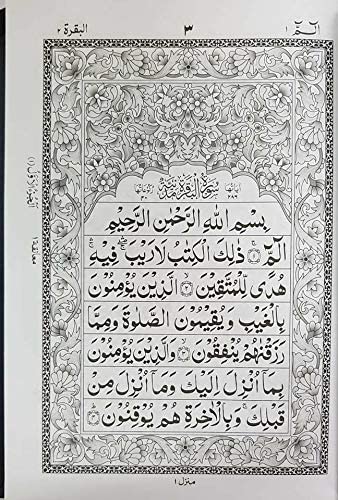 الٓمّٓ ١
٣
البقرة ٢
سُوْرَةُ الْبَقَرَةِ مَدَنِيَّةٌ
اٰیاتها ٢٨٦
رکوعاتها ٤٠
بِسْمِ اللّٰهِ الرَّحْمٰنِ الرَّحِيْمِ
الٓمّٓ ۚ﴿١﴾ ذٰلِكَ الْكِتٰبُ لَا رَيْبَ ۛۖۚ فِيْهِ ۛۚ
هُدًى لِّلْمُتَّقِيْنَ ۙ﴿٢﴾ الَّذِيْنَ يُؤْمِنُوْنَ
بِالْغَيْبِ وَيُقِيْمُوْنَ الصَّلٰوةَ وَمِمَّا
رَزَقْنٰهُمْ يُنْفِقُوْنَ ۙ﴿٣﴾ وَالَّذِيْنَ يُؤْمِنُوْنَ
بِمَاۤ اُنْزِلَ اِلَيْكَ وَمَاۤ اُنْزِلَ مِنْ
قَبْلِكَ ۚ وَبِالْاٰخِرَةِ هُمْ يُوْقِنُوْنَ ؕ﴿٤﴾
منزل ١